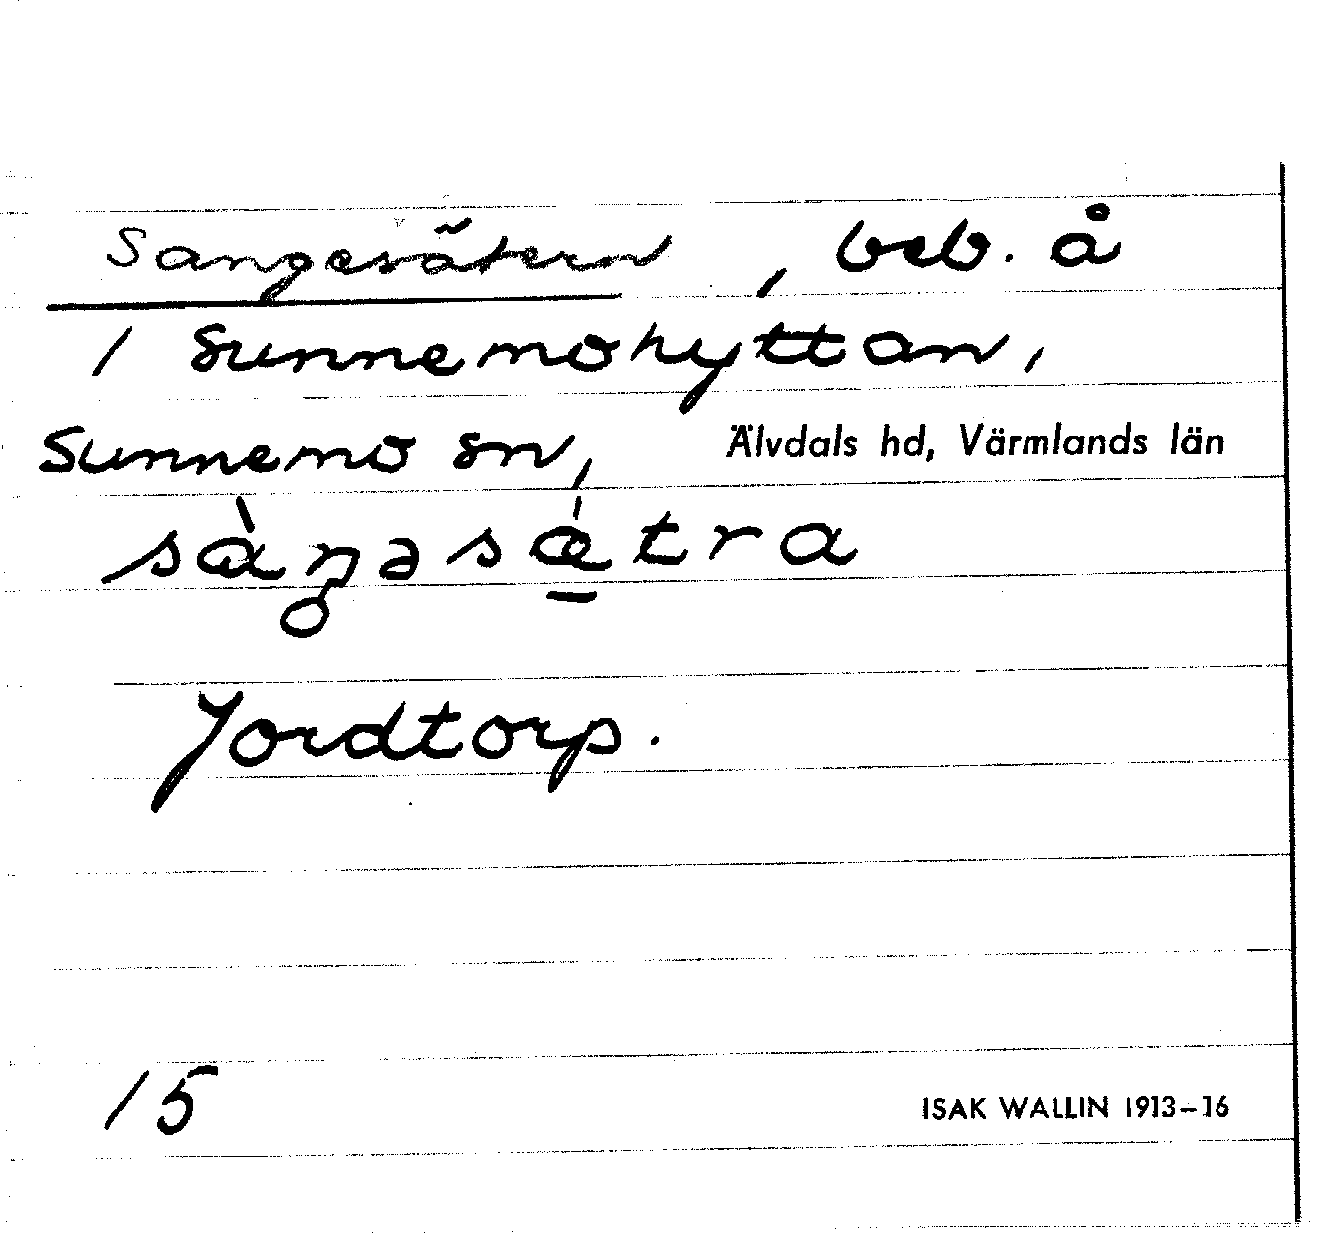 Sangesätern, beb. å
1 Sunnemohyttan,
Sunnemo sn, Älvdals hd, Värmlands län
sàŋəsæ̠̀tra
Jordtorp.
15 ISAK WALLIN 1913–16